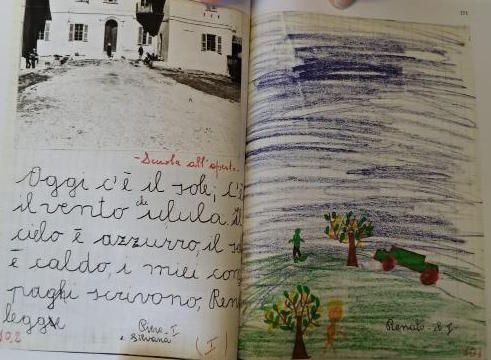 -Scuola all'aperto-
Oggi c'è il sole, c'è
il vento che ulula il
cielo è azzurro, il so
è caldo, i miei com
paghi scrivono, Ren
legge
Piera - I
e Silvana
(I)
Renato - I